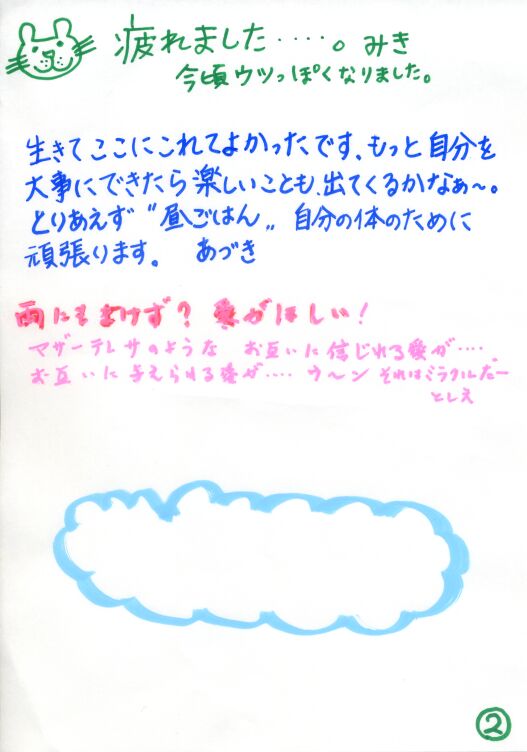 疲れました‥‥。みき
今頃ウツっぽくなりました。
生きてここにこれてよかったです、もっと自分を
大事にできたら楽しいことも、出てくるかなぁ～。
とりあえず〝昼ごはん〟自分の体のために
頑張ります。 あづき
雨にもまけず？愛がほしい！
マザーテレサのような お互いに信じれる愛が‥‥.
お互いに与えられる愛が‥‥ ウ～ン それはミラクルだー
としえ
②